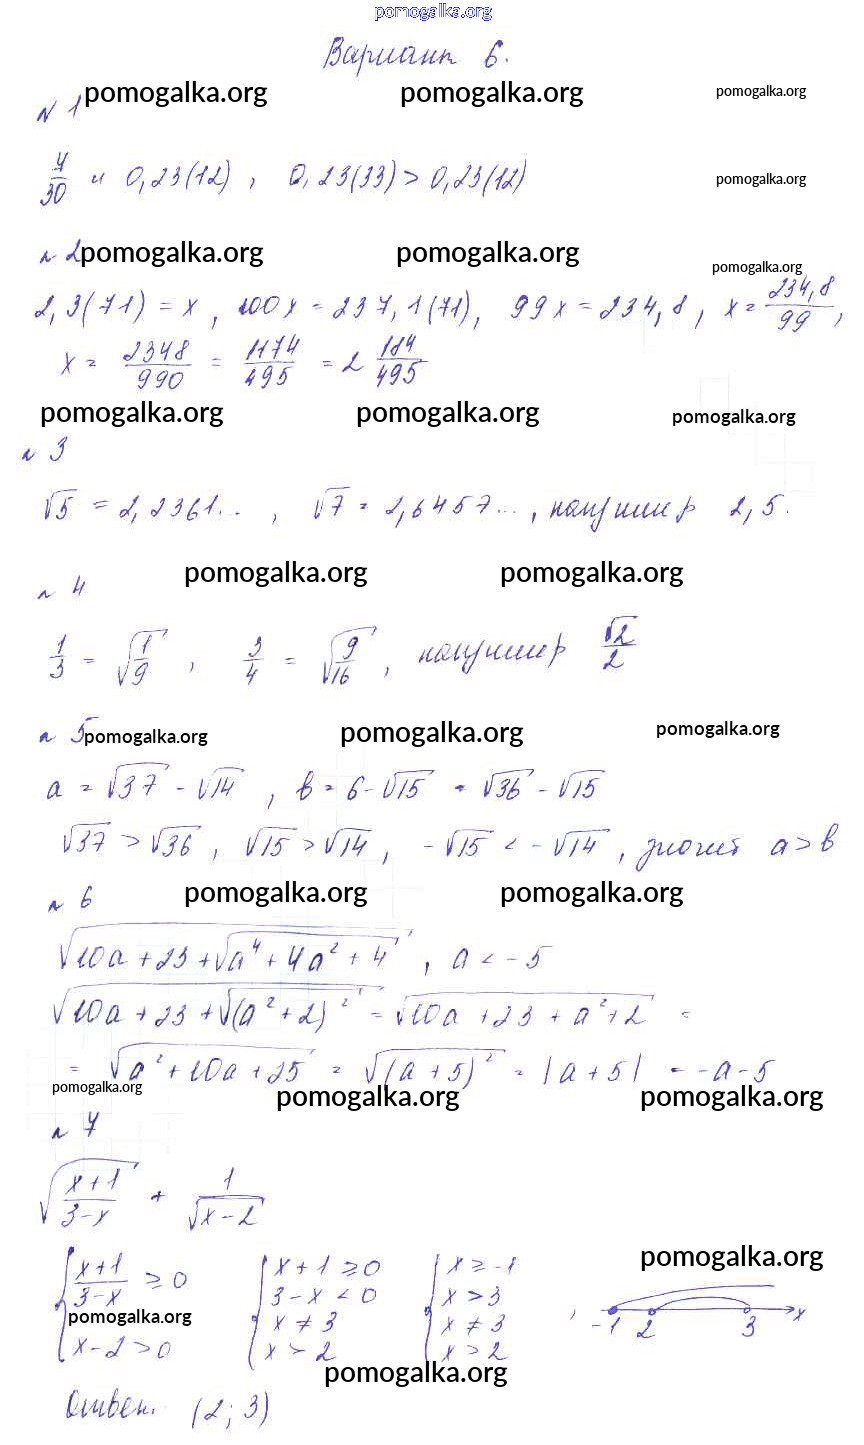 pomogalka.org
Вариант 6.
N 1 pomogalka.org pomogalka.org pomogalka.org
7/30 и 0,23(12), 0,23(33) > 0,23(12) pomogalka.org
N 2 pomogalka.org pomogalka.org pomogalka.org
2,3(71) = x, 100x = 237,1(71), 99x = 234,8, x = 234,8/99,
x = 2348/990 = 1174/495 = 2 184/495
pomogalka.org pomogalka.org pomogalka.org
N 3
√5 = 2,2361..., √7 = 2,6457..., например 2,5.
N 4 pomogalka.org pomogalka.org
1/3 = √(1/9), 3/4 = √(9/16), например √2/2
N 5 pomogalka.org pomogalka.org pomogalka.org
a = √37 - √14, b = 6 - √15 = √36 - √15
√37 > √36, √15 > √14, -√15 < -√14, значит a > b
N 6 pomogalka.org pomogalka.org
√(10a + 23 + √(a⁴ + 4a² + 4)), a < -5
√(10a + 23 + √(a² + 2)²) = √(10a + 23 + a² + 2) =
= √(a² + 10a + 25) = √(a + 5)² = |a + 5| = -a - 5
pomogalka.org pomogalka.org pomogalka.org
N 7
√((x+1)/(3-x)) + 1/√(x-2)
{ (x+1)/(3-x) ≥ 0 { x + 1 ≥ 0 { x ≥ -1 pomogalka.org
3 - x < 0 x > 3 , -1 2 3 x
pomogalka.org x ≠ 3 x ≠ 3
x - 2 > 0 x > 2 x > 2
pomogalka.org
Ответ. (2; 3)